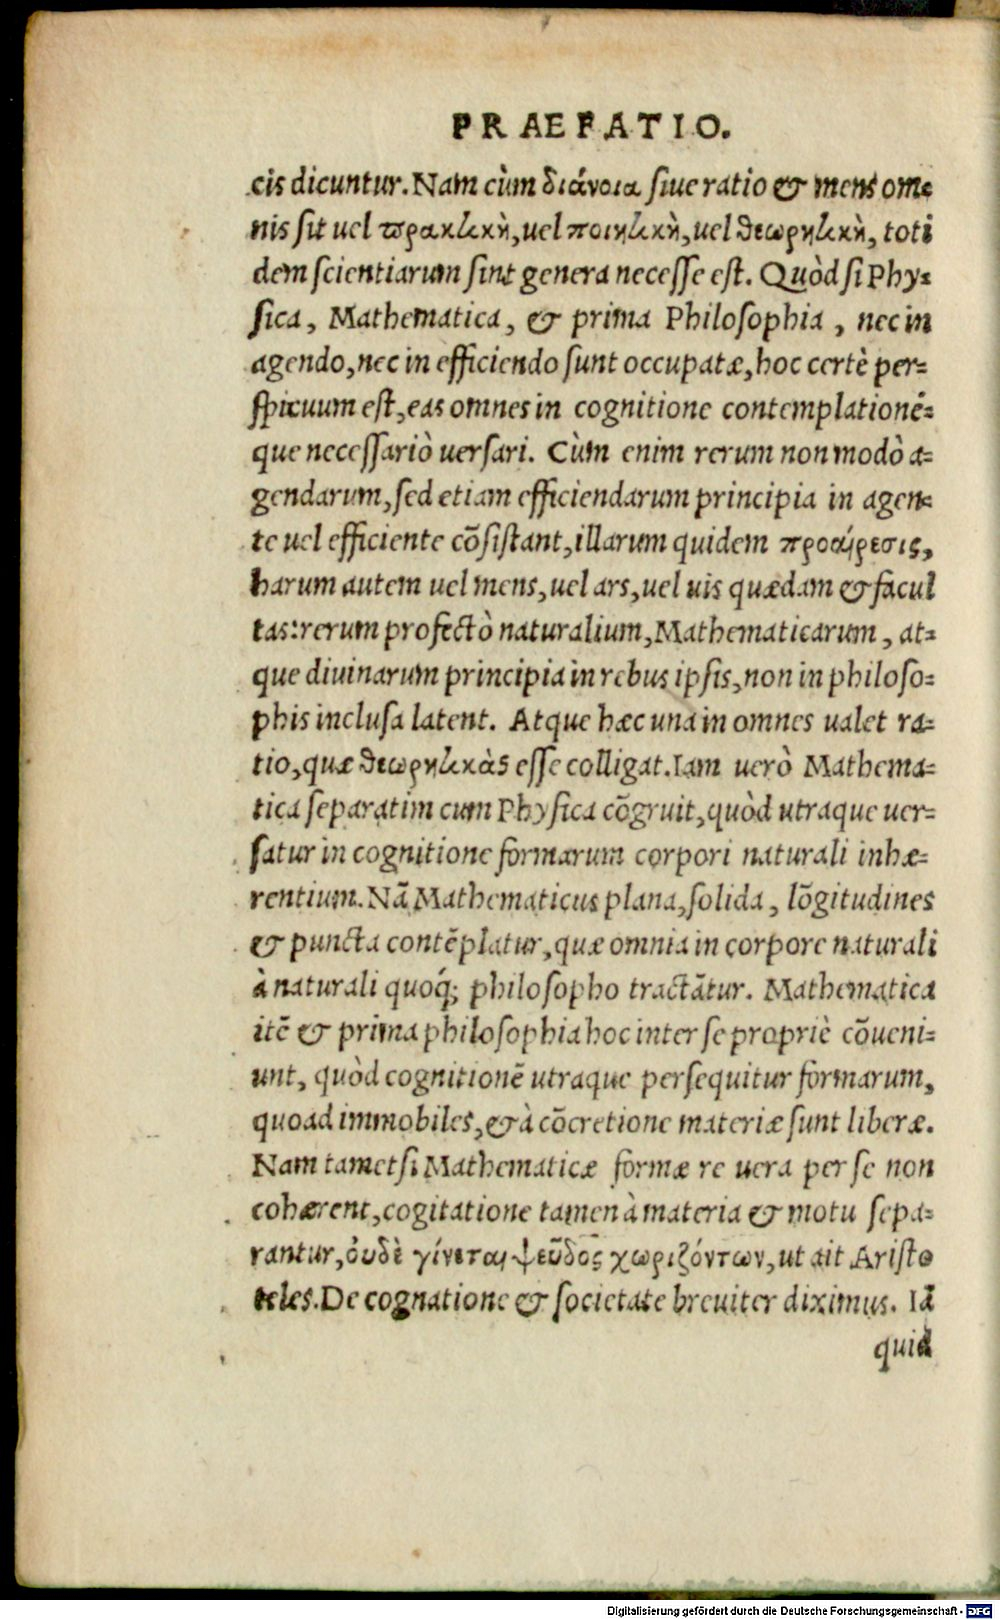 PRAEFATIO.
cis dicuntur. Nam cùm διάνοια siue ratio & mens om-
nis sit uel πρακτικὴ, uel ποιητικὴ, uel θεωρητικὴ, toti
dem scientiarum sint genera necesse est. Quòd si Phy-
sica, Mathematica, & prima Philosophia, nec in
agendo, nec in efficiendo sunt occupatæ, hoc certè per-
spicuum est, eas omnes in cognitione contemplationé-
que necessariò uersari. Cùm enim rerum non modò a-
gendarum, sed etiam efficiendarum principia in agen-
te uel efficiente cōsistant, illarum quidem προαίρεσις,
harum autem uel mens, uel ars, uel uis quædam & facul
tas: rerum profectò naturalium, Mathematicarum, at-
que diuinarum principia in rebus ipsis, non in philoso-
phis inclusa latent. Atque hæc una in omnes ualet ra-
tio, quæ θεωρητικὰς esse colligat. Iam uerò Mathema-
tica separatim cum Physica cōgruit, quòd utraque uer-
satur in cognitione formarum corpori naturali inhæ-
rentium. Nā Mathematicus plana, solida, lōgitudines
& puncta contēplatur, quæ omnia in corpore naturali
à naturali quoq́; philosopho tractātur. Mathematica
itē & prima philosophia hoc inter se propriè cōueni-
unt, quòd cognitionē utraque persequitur formarum,
quoad immobiles, & à cōcretione materiæ sunt liberæ.
Nam tametsi Mathematicæ formæ re uera per se non
cohærent, cogitatione tamen à materia & motu sepa-
rantur, οὐδὲ γίνεται ψεῦδος χωριζόντων, ut ait Aristo
teles. De cognatione & societate breuiter diximus. Iā
quid
Digitalisierung gefördert durch die Deutsche Forschungsgemeinschaft - DFG